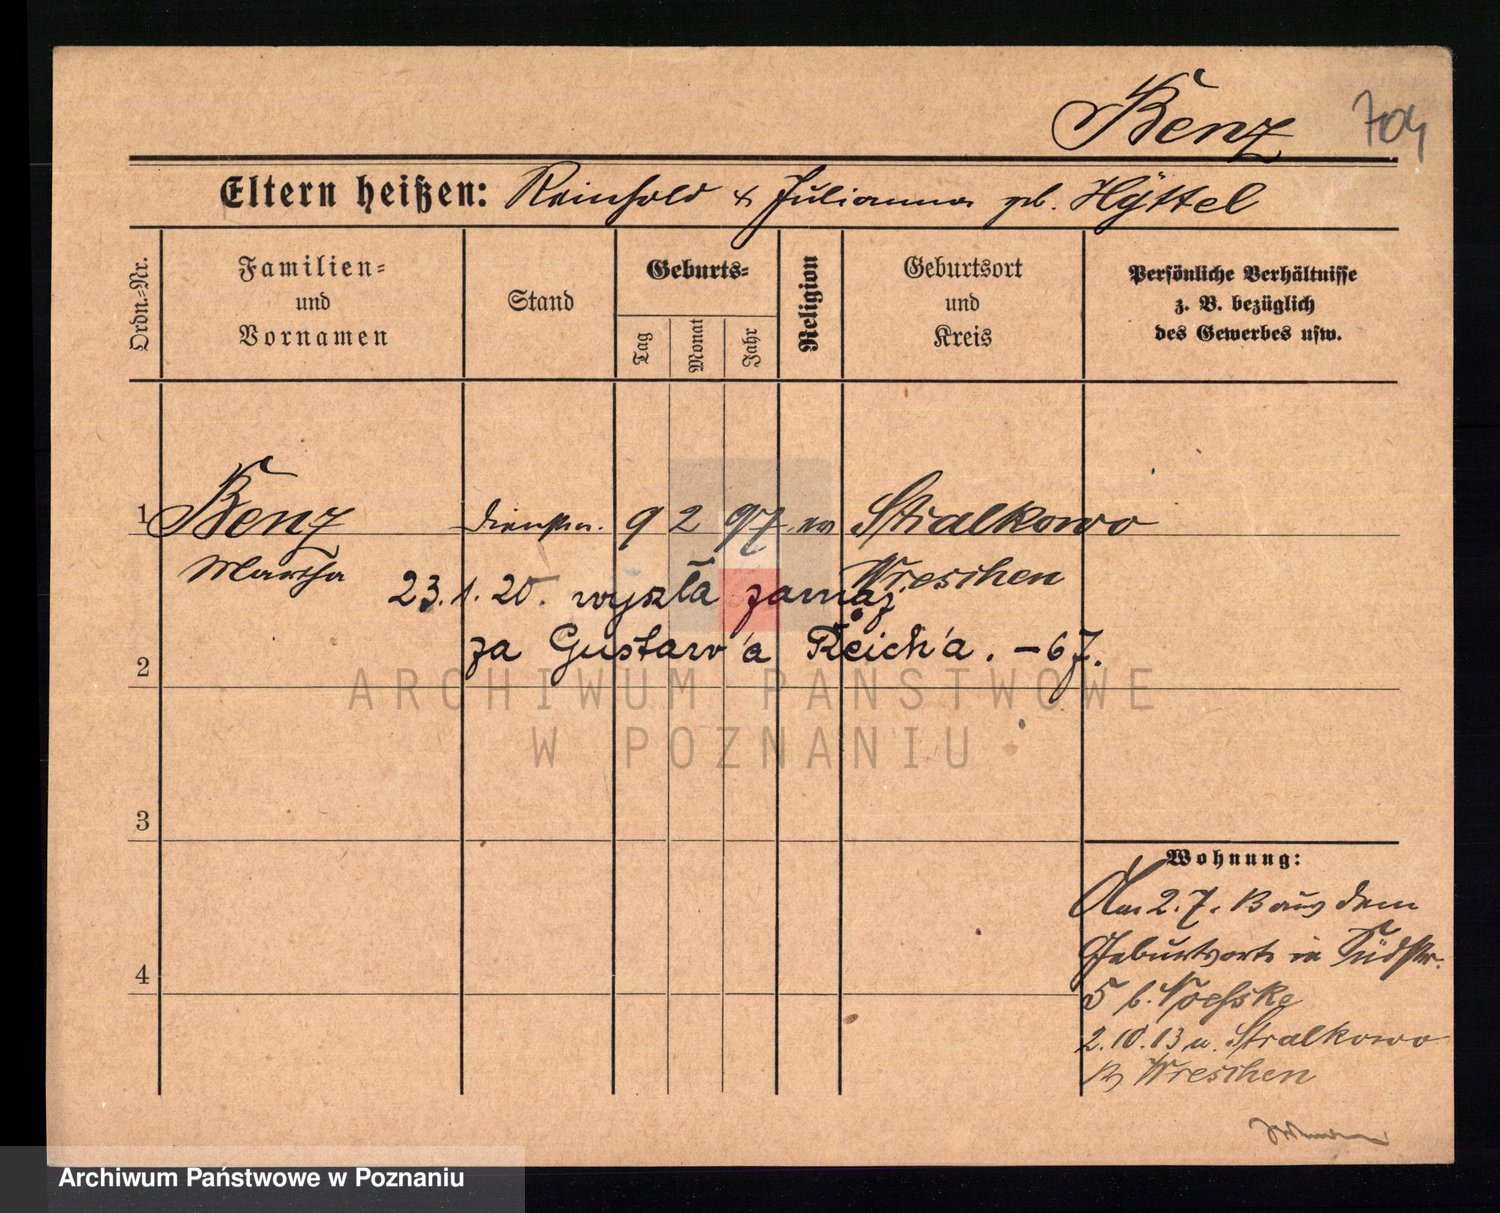 Benz 704
Eltern heißen: Reinhold & Julianna gb. Hÿttel
Ordn.-Nr.
Familien-
und
Vornamen
Stand
Geburts-
Tag
Monat
Jahr
Religion
Geburtsort
und
Kreis
Persönliche Verhältnisse
z. B. bezüglich
des Gewerbes usw.
1 Benz 9 2 97 ev Stralkowo
Martha Wreschen
23.1.20. wyszła zamąż
za Gustaw'a Reich'a. - 67.
2
3
4
Wohnung:
Am 2.7.13 aus dem
Geburtsorte in Südstr.
5 b.
2.10.13 n. Stralkowo
Wreschen
ARCHIWUM PAŃSTWOWE
W POZNANIU
Archiwum Państwowe w Poznaniu